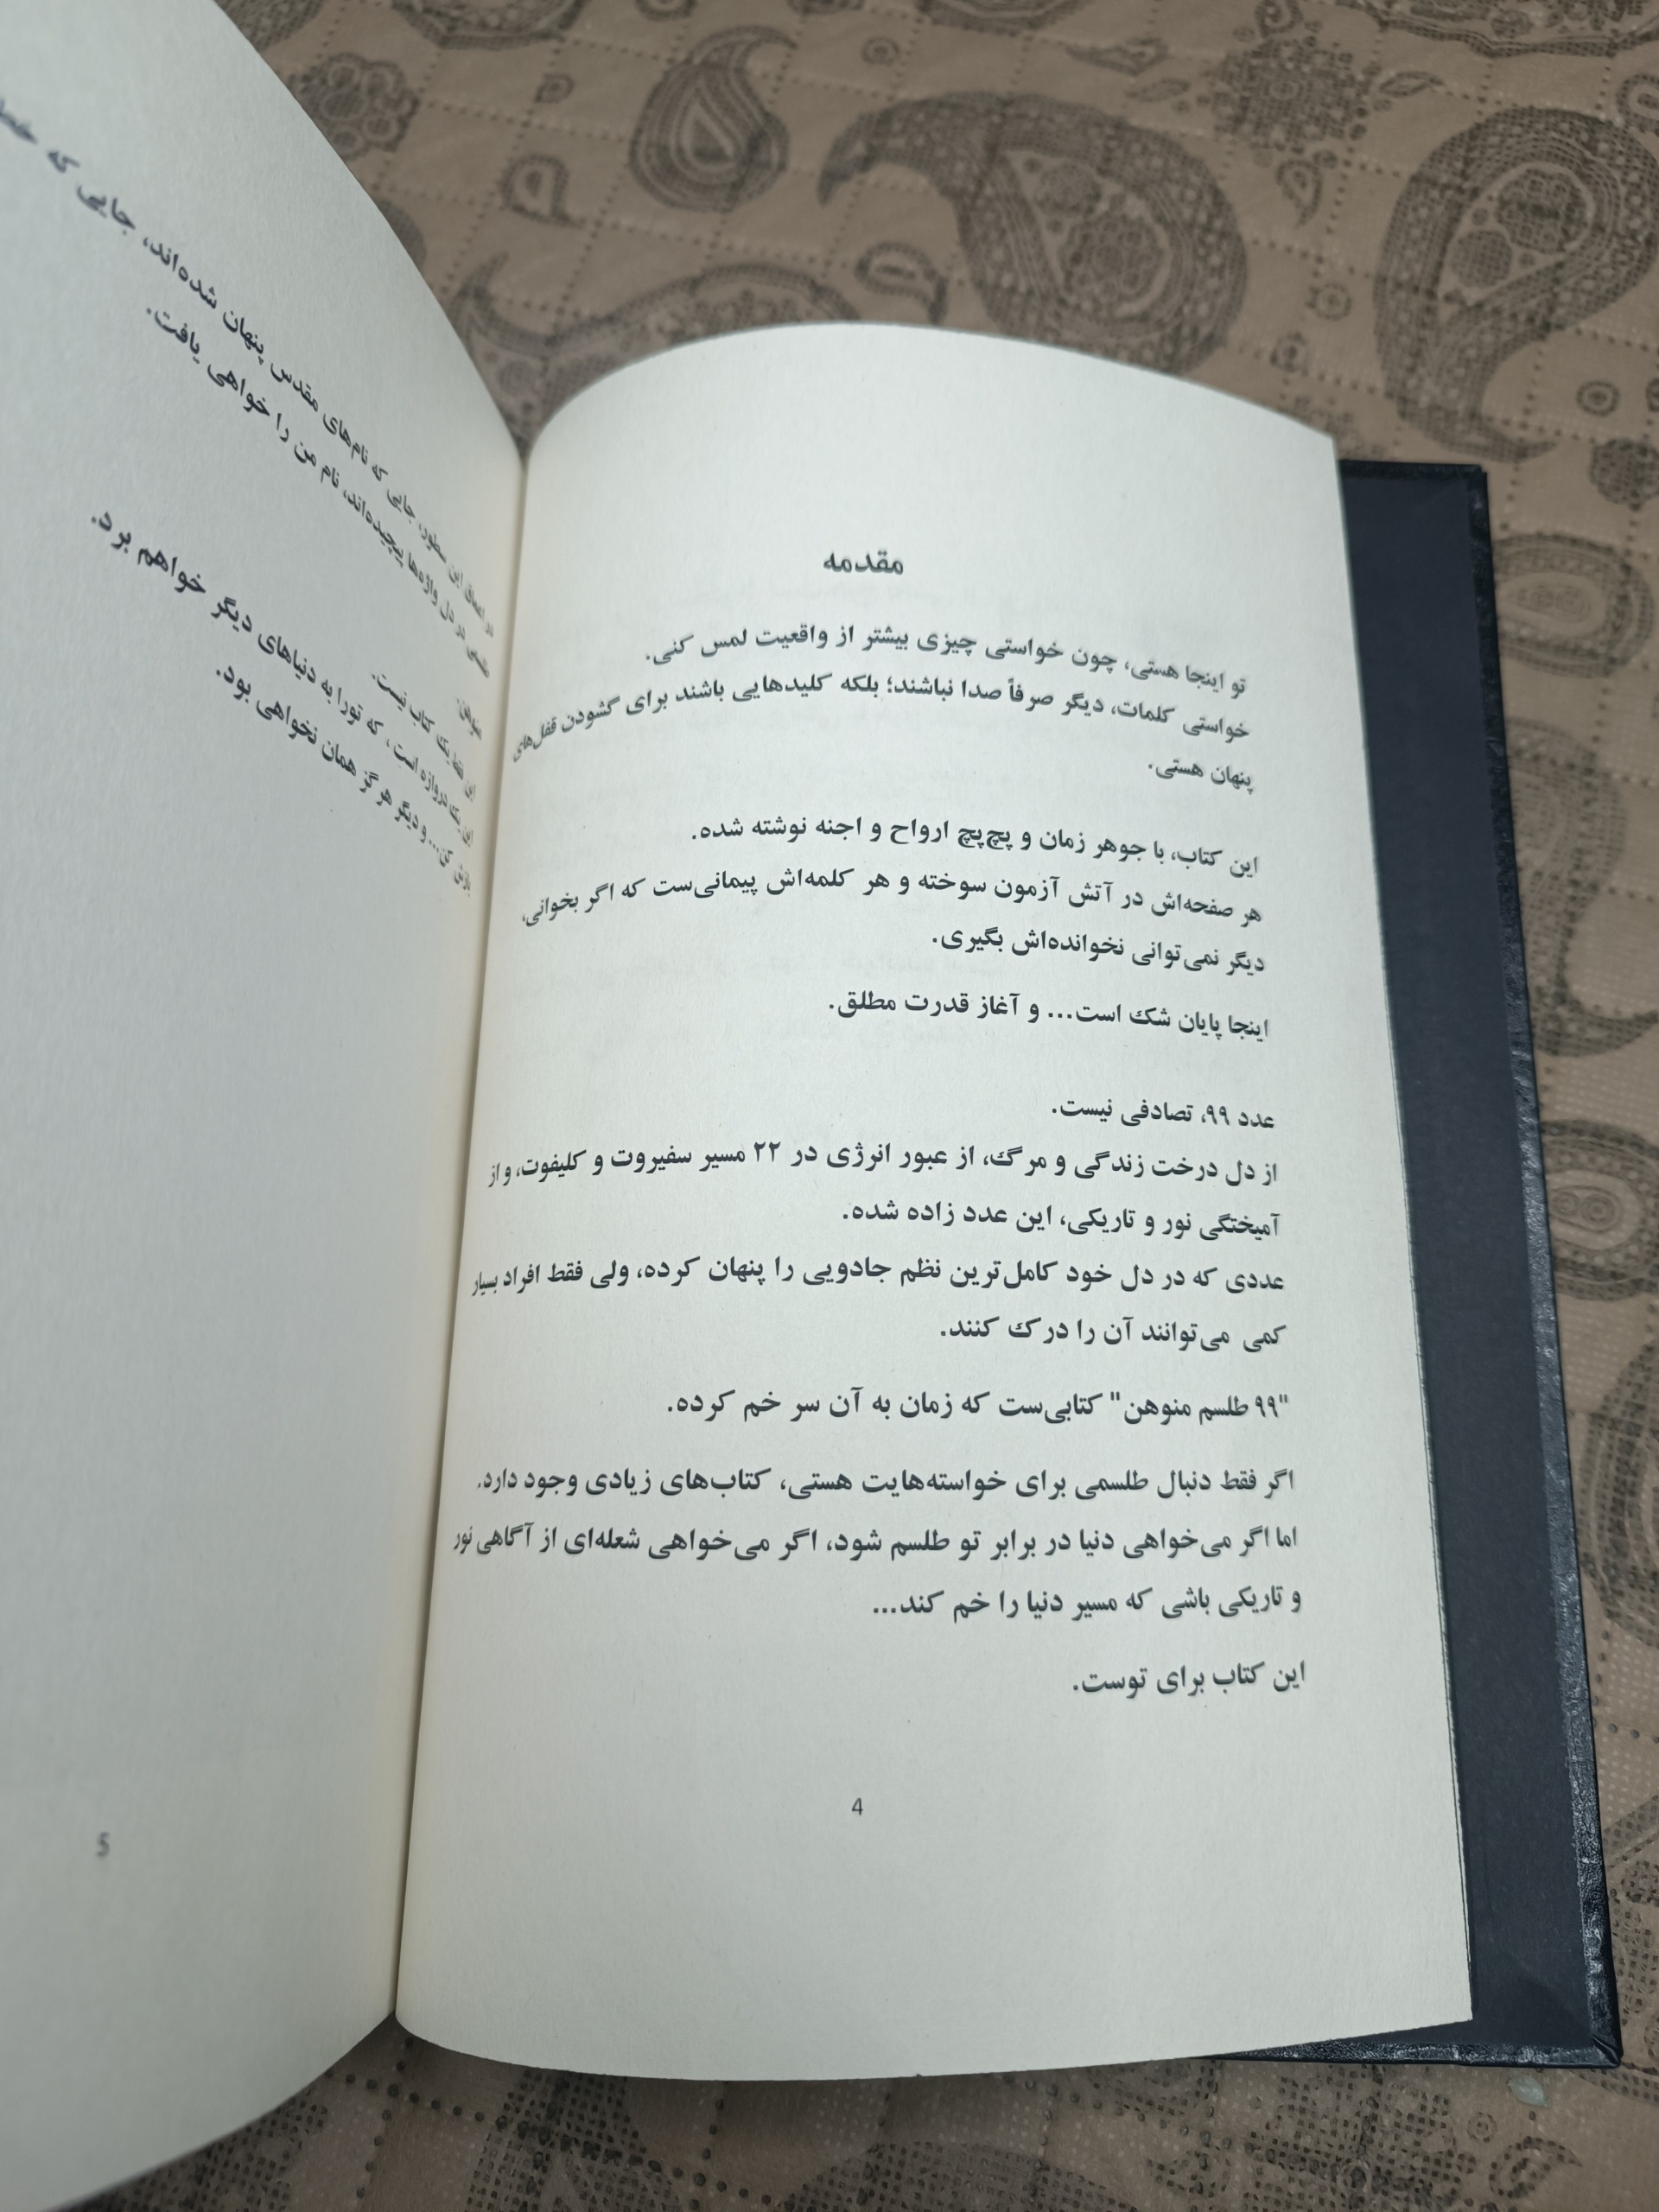 مقدمه
تو اینجا هستی، چون خواستی چیزی بیشتر از واقعیت لمس کنی.
خواستی کلمات، دیگر صرفاً صدا نباشند؛ بلکه کلیدهایی باشند برای گشودن قفل‌های
پنهان هستی.
این کتاب، با جوهر زمان و پچ‌پچ ارواح و اجنه نوشته شده.
هر صفحه‌اش در آتش آزمون سوخته و هر کلمه‌اش پیمانی‌ست که اگر بخوانی،
دیگر نمی‌توانی نخوانده‌اش بگیری.
اینجا پایان شک است... و آغاز قدرت مطلق.
عدد ۹۹، تصادفی نیست.
از دل درخت زندگی و مرگ، از عبور انرژی در ۲۲ مسیر سفیروت و کلیفوت، و از
آمیختگی نور و تاریکی، این عدد زاده شده.
عددی که در دل خود کامل‌ترین نظم جادویی را پنهان کرده، ولی فقط افراد بسیار
کمی می‌توانند آن را درک کنند.
"۹۹ طلسم منوهن" کتابی‌ست که زمان به آن سر خم کرده.
اگر فقط دنبال طلسمی برای خواسته‌هایت هستی، کتاب‌های زیادی وجود دارد.
اما اگر می‌خواهی دنیا در برابر تو طلسم شود، اگر می‌خواهی شعله‌ای از آگاهی نور
و تاریکی باشی که مسیر دنیا را خم کند...
این کتاب برای توست.
4
در اعماق این سطور، جایی که نام‌های مقدس پنهان شده‌اند، جایی که
در دل واژه‌ها پیچیده‌اند، نام من را خواهی یافت.
منوهن.
این فقط یک کتاب نیست.
این یک دروازه است، که تورا به دنیاهای دیگر خواهم برد.
بازش کن... و دیگر هرگز همان نخواهی بود.
5